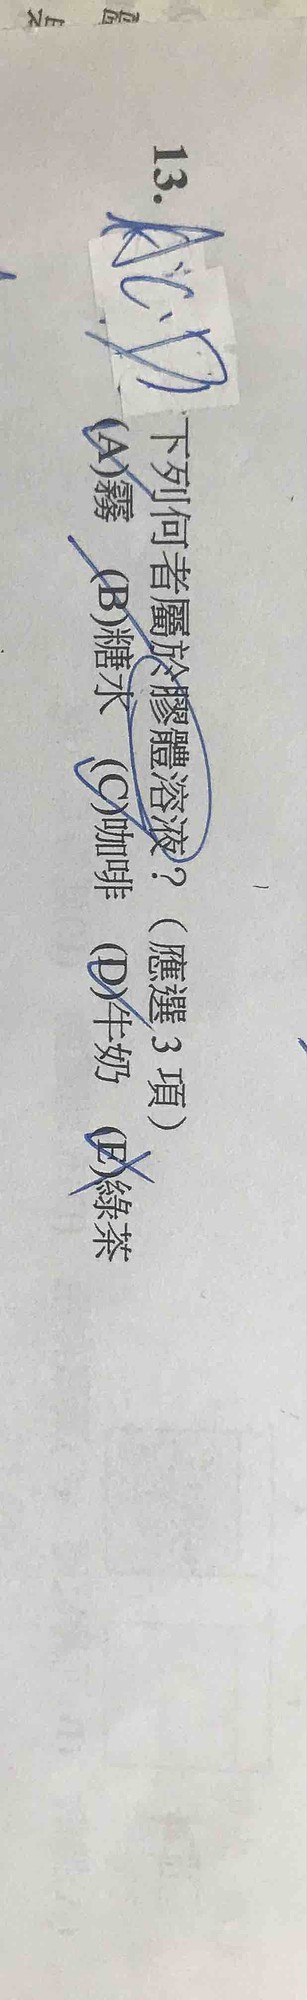 13. ACD 下列何者屬於膠體溶液?(應選3項)
(A)霧 (B)糖水 (C)咖啡 (D)牛奶 (E)綠茶